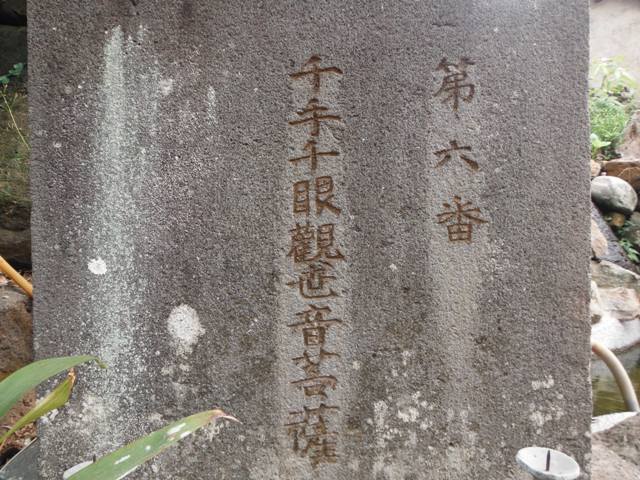 第六番
千手千眼觀世音菩薩